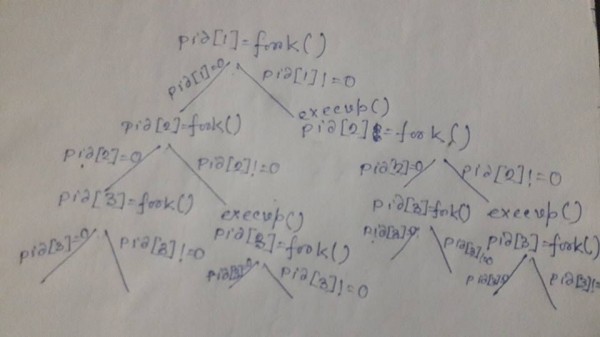 pid[1]=fork()
pid[1]=0 pid[1]!=0
execvp()
pid[2]=fork() pid[2]=fork()
pid[2]=0 pid[2]!=0 pid[2]=0 pid[2]!=0
pid[3]=fork() execvp() pid[3]=fork() execvp()
pid[3]=0 pid[3]!=0 pid[3]=fork() pid[3]=0 pid[3]!=0 pid[3]=fork()
pid[3]=0 pid[3]!=0 pid[3]=0 pid[3]!=